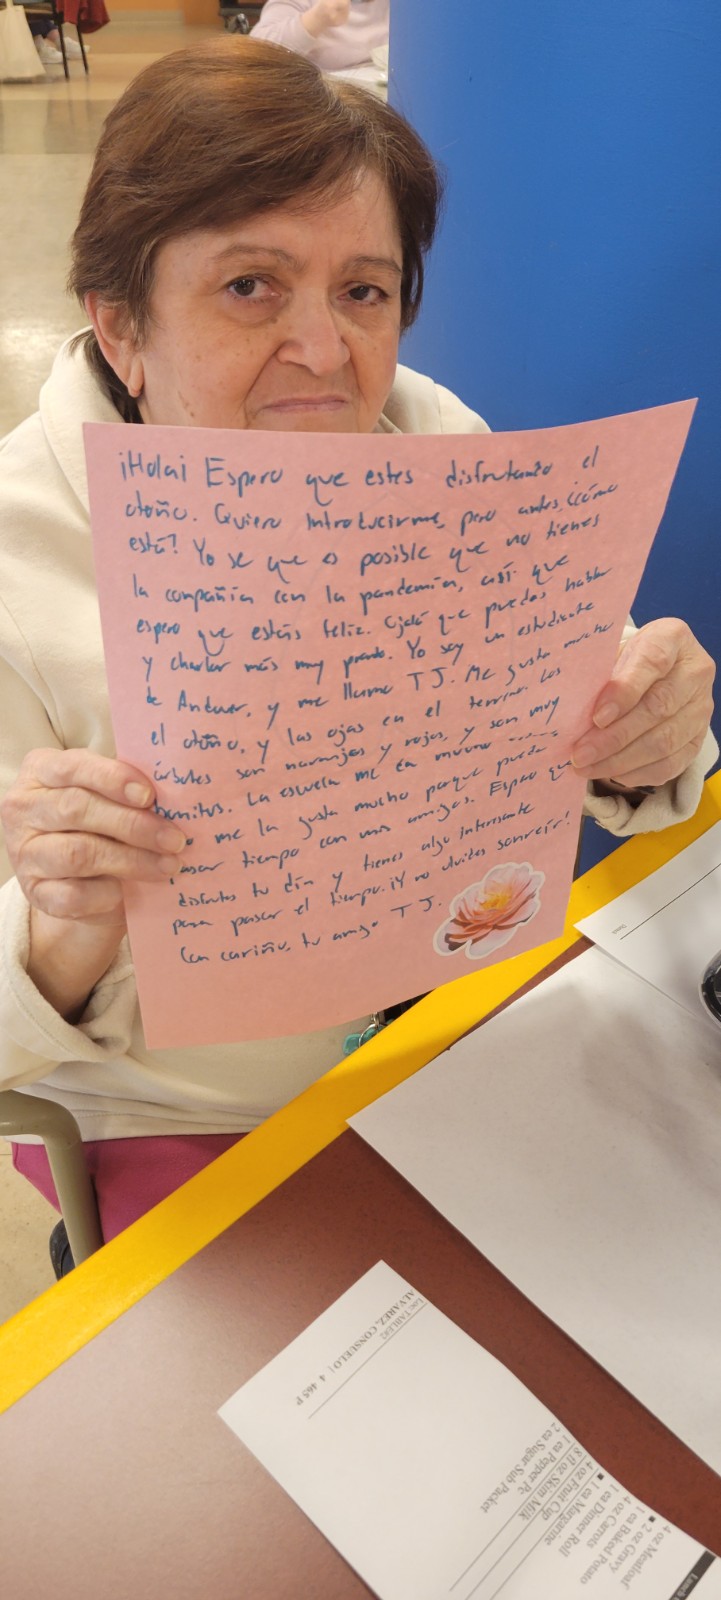 ¡Hola¡ Espero que estes disfrutando el
otoño. Quiero introducirme, pero antes, ¿cómo
está? Yo se que es posible que no tienes
la compañía con la pandemia, así que
espero que estás feliz. Ojalá que puedas hablar
y charlar más muy pronto. Yo soy un estudiante
de Andover, y me llamo TJ. Me gusta mucho
el otoño, y las ojas en el terreno. Los
árboles son naranjas y rojos, y son muy
bonitos. La escuela me da mucho
me la gusta mucho porque puedo
pasar tiempo con mis amigos. Espero que
disfrutes tu día y tienes algo interesante
para pasar el tiempo. ¡Y no olvides sonreír!
Con cariño, tu amigo TJ.
Loc: TABLE
ALVAREZ, CONSUELO | 4 465 P
Lunch
4 oz Meatloaf
2 oz Gravy
1 ea Baked Potato
4 oz Carrots
1 ea Dinner Roll
1 ea Margarine
4 oz Fruit Cup
8 fl oz Skim Milk
1 ea Pepper Pc
2 ea Sugar Sub Packet